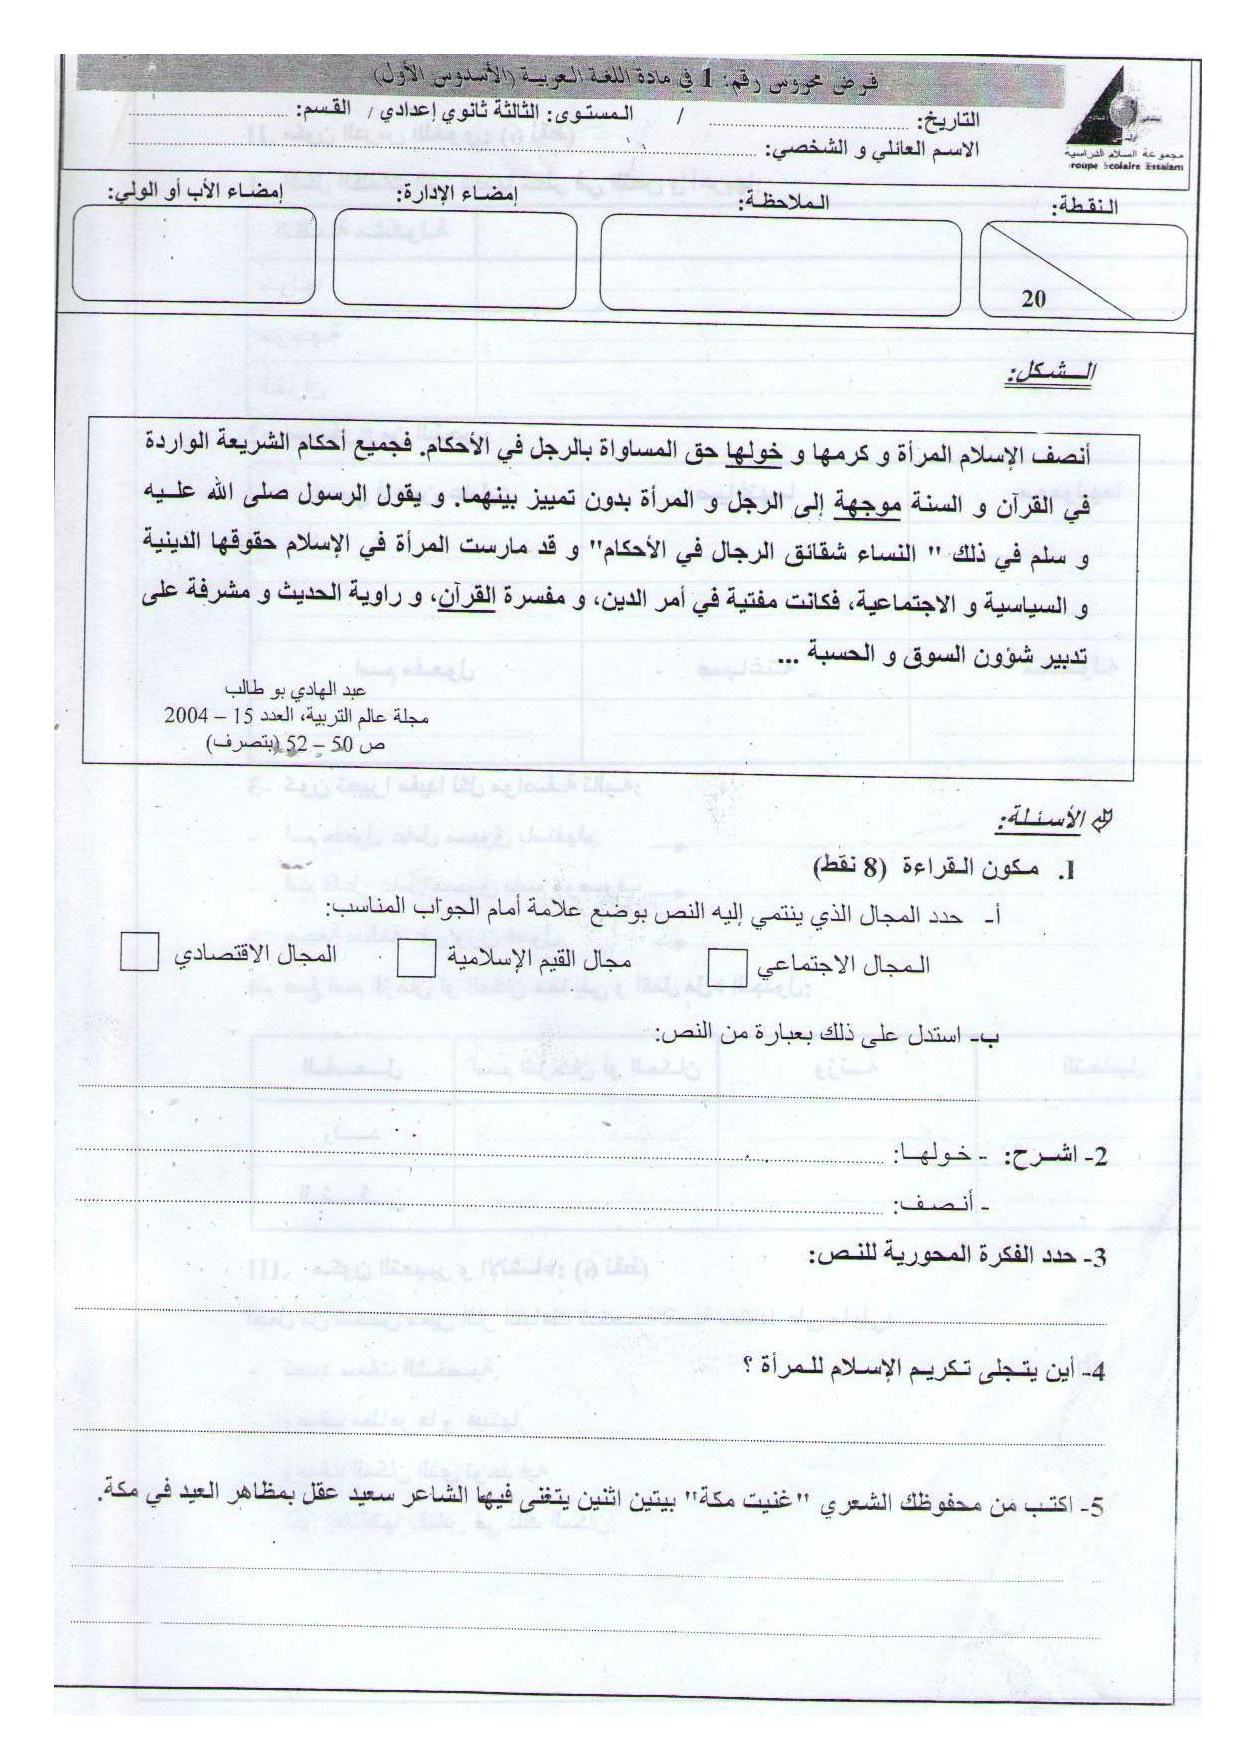 فرض محروس رقم: 1 في مادة اللغة العربية (الأسدوس الأول)
التاريخ: ........ / المستوى: الثالثة ثانوي إعدادي / القسم: ........
الاسم العائلي و الشخصي: ........
مجموعة السلام الدراسية
roupe Scolaire Essalam
النقطة: الملاحظة: إمضاء الإدارة: إمضاء الأب أو الولي:
20
الـشكل:
أنصف الإسلام المرأة و كرمها و خولها حق المساواة بالرجل في الأحكام. فجميع أحكام الشريعة الواردة
في القرآن و السنة موجهة إلى الرجل و المرأة بدون تمييز بينهما. و يقول الرسول صلى الله عليه
و سلم في ذلك " النساء شقائق الرجال في الأحكام" و قد مارست المرأة في الإسلام حقوقها الدينية
و السياسية و الاجتماعية، فكانت مفتية في أمر الدين، و مفسرة القرآن، و راوية الحديث و مشرفة على
تدبير شؤون السوق و الحسبة ...
عبد الهادي بو طالب
مجلة عالم التربية، العدد 15 – 2004
ص 50 – 52 (بتصرف)
الأسئلة:
I. مكون القراءة (8 نقط)
أ- حدد المجال الذي ينتمي إليه النص بوضع علامة أمام الجواب المناسب:
المجال الاجتماعي مجال القيم الإسلامية المجال الاقتصادي
ب- استدل على ذلك بعبارة من النص:
2- اشرح: - خولها: ........
- أنصف: ........
3- حدد الفكرة المحورية للنص:
4- أين يتجلى تكريم الإسلام للمرأة ؟
5- اكتب من محفوظك الشعري "غنيت مكة" بيتين اثنين يتغنى فيها الشاعر سعيد عقل بمظاهر العيد في مكة.